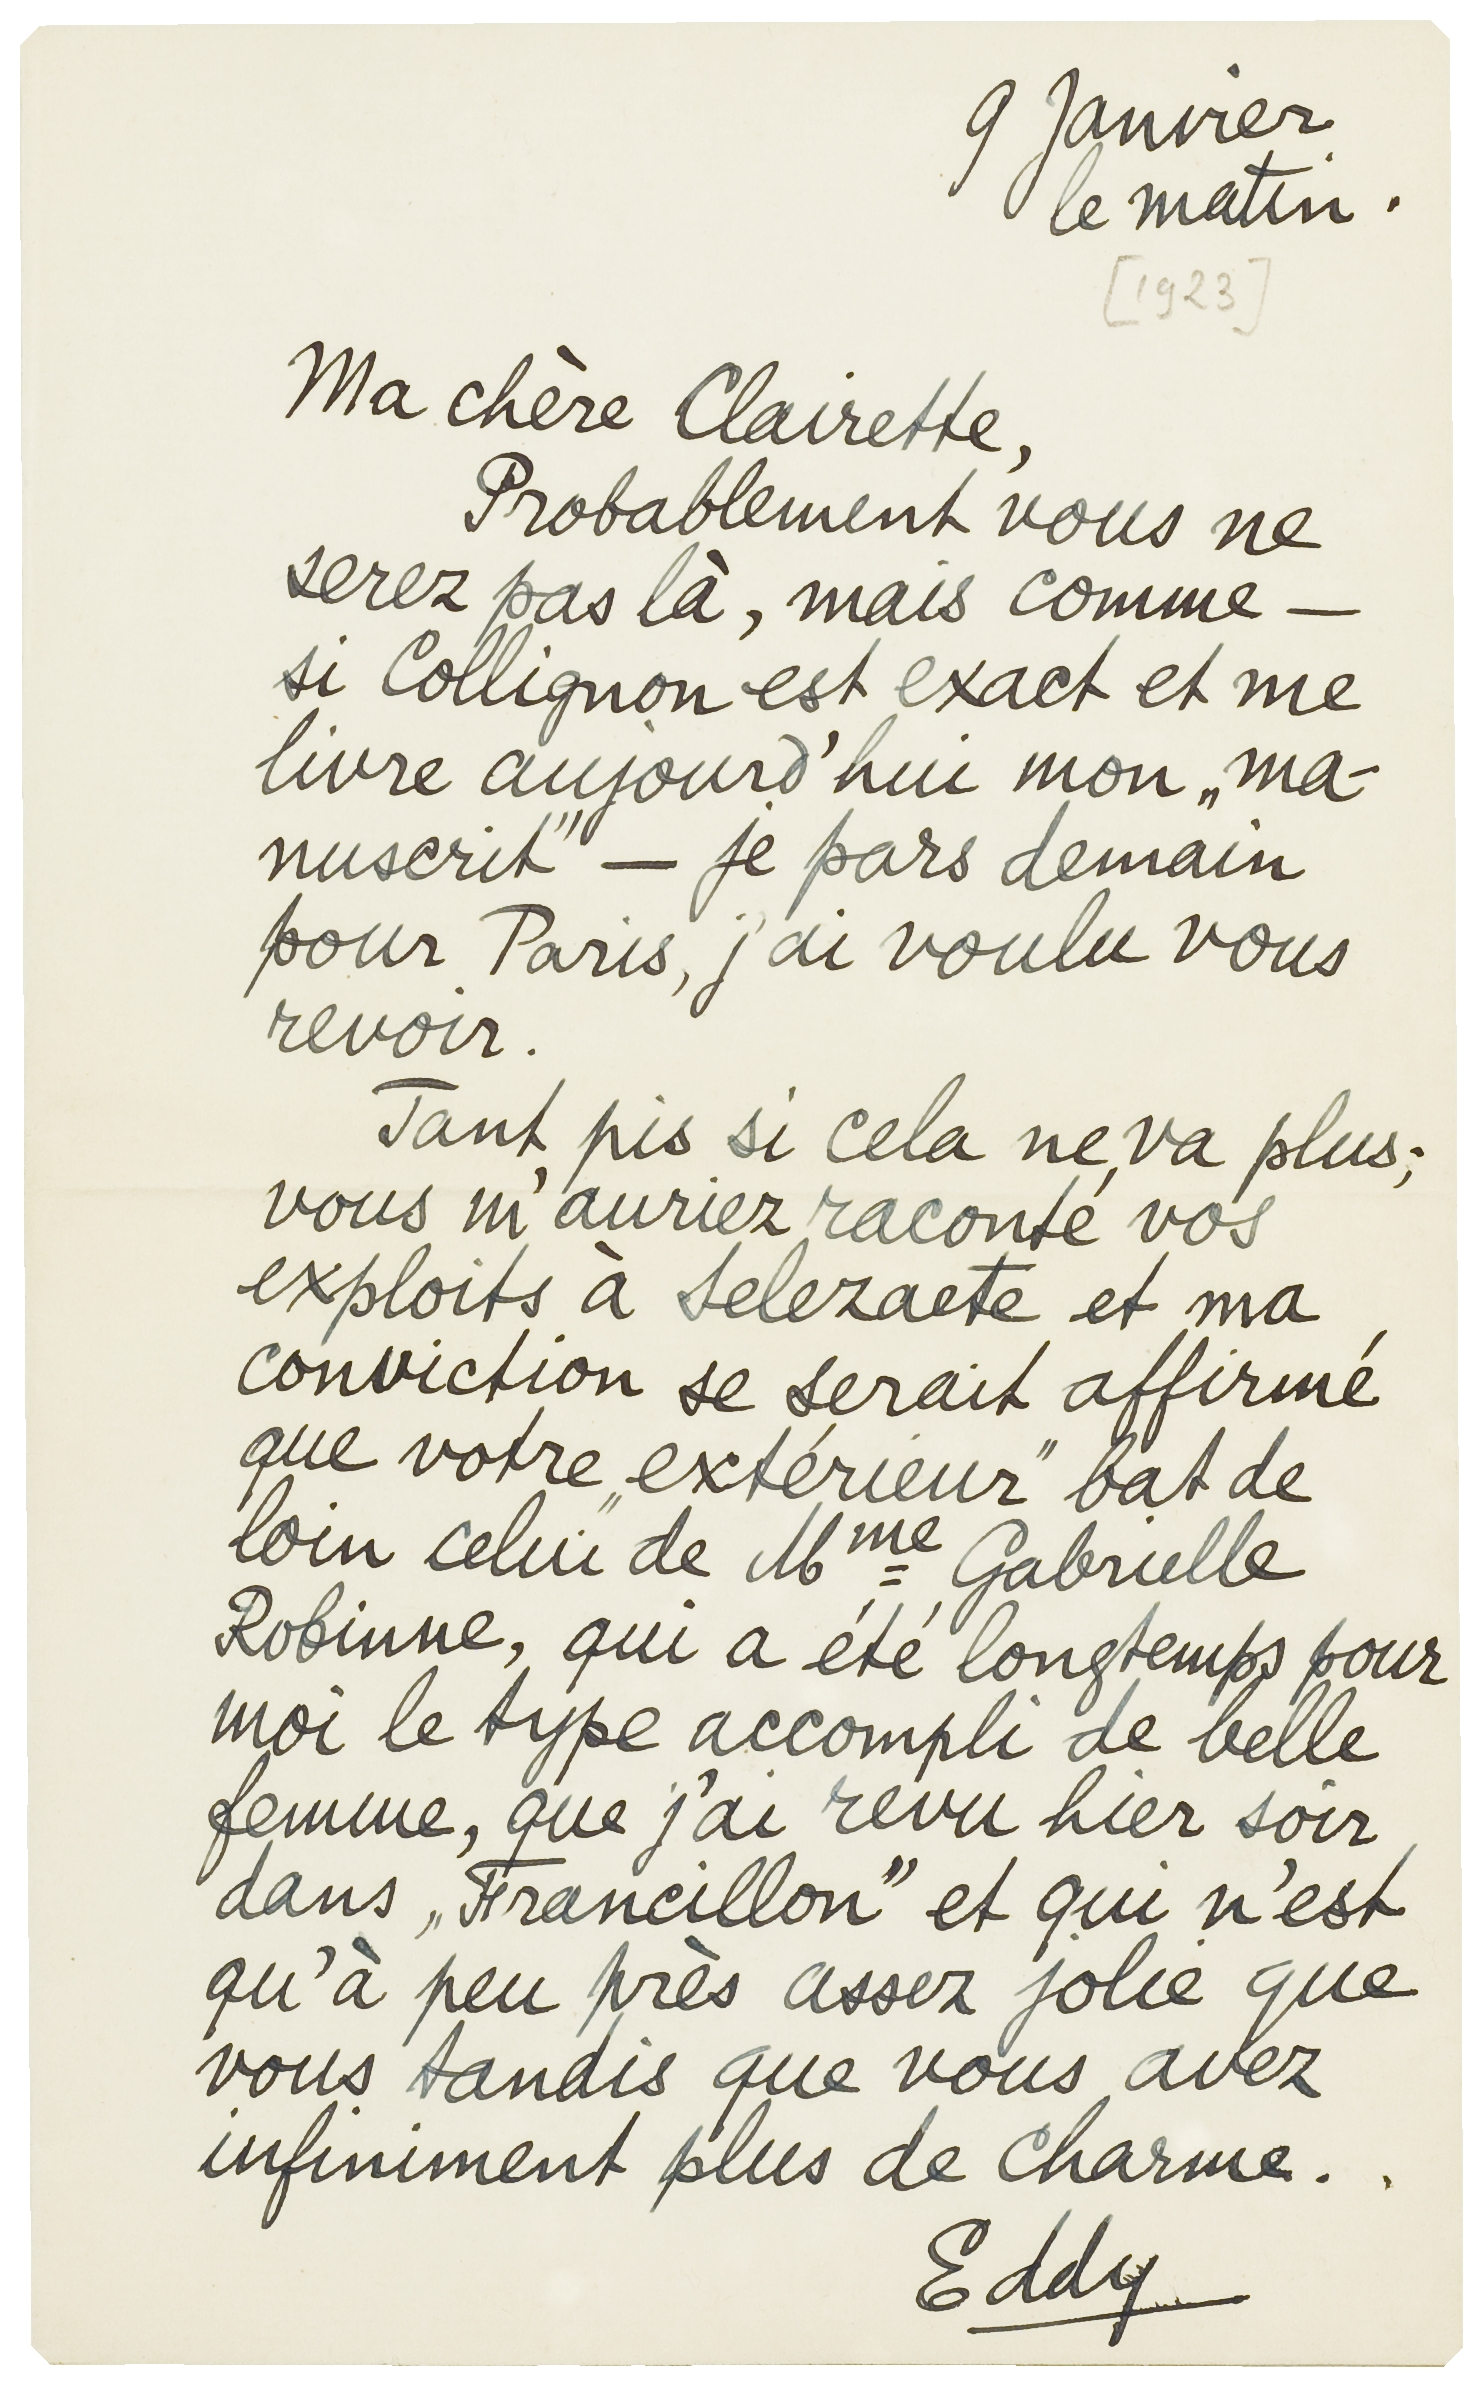 9 Janvier
le matin.
[1923]
Ma chère Clairette,
Probablement vous ne
serez pas là, mais comme —
si Collignon est exact et me
livre aujourd'hui mon „ma-
nuscrit" — je pars demain
pour Paris, j'ai voulu vous
revoir.
Tant pis si cela ne va plus;
vous m'auriez raconté vos
exploits à Selezaete et ma
conviction se serait affirmé
que votre „extérieur" bat de
loin celui de Mme Gabrielle
Robinne, qui a été longtemps pour
moi le type accompli de belle
femme, que j'ai revu hier soir
dans „Francillon" et qui n'est
qu'à peu près assez jolie que
vous tandis que vous avez
infiniment plus de charme. .
Eddy